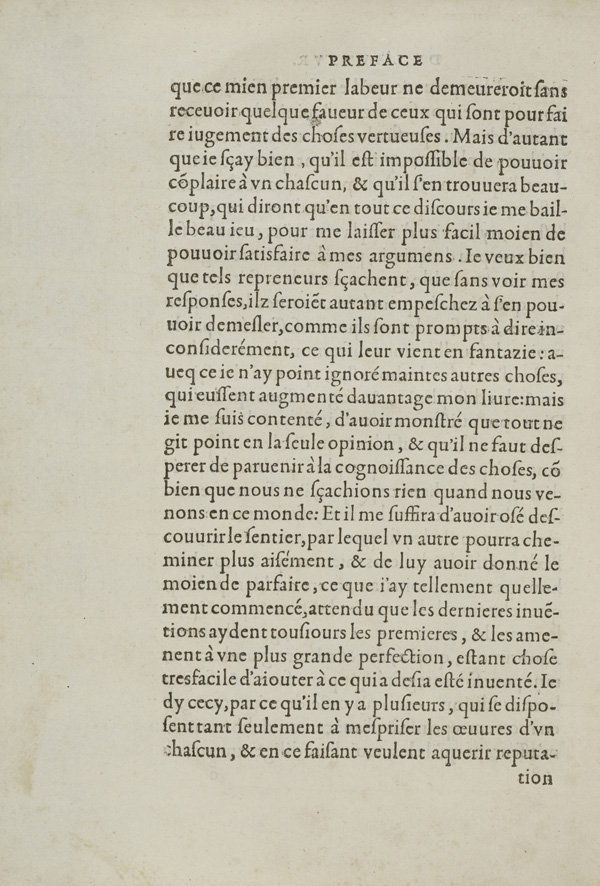 PREFACE
que ce mien premier labeur ne demeureroit ſans
receuoir quelque faueur de ceux qui ſont pour fai
re iugement des choſes vertueuſes. Mais d'autant
que ie ſçay bien, qu'il eſt impoſſible de pouuoir
cõplaire à vn chaſcun, & qu'il ſ'en trouuera beau-
coup, qui diront qu'en tout ce diſcours ie me bail-
le beau ieu, pour me laiſſer plus facil moien de
pouuoir ſatisfaire à mes argumens. Ie veux bien
que tels repreneurs ſçachent, que ſans voir mes
reſponſes, ilz ſeroiẽt autant empeſchez à ſ'en pou-
uoir demeſler, comme ils ſont prompts à dire in-
conſiderément, ce qui leur vient en fantazie: a-
uecq ce ie n'ay point ignoré maintes autres choſes,
qui euſſent augmenté dauantage mon liure: mais
ie me ſuis contenté, d'auoir monſtré que tout ne
git point en la ſeule opinion, & qu'il ne faut deſ-
perer de paruenir à la cognoiſſance des choſes, cõ
bien que nous ne ſçachions rien quand nous ve-
nons en ce monde: Et il me ſuffira d'auoir oſé deſ-
couurir le ſentier, par lequel vn autre pourra che-
miner plus aiſément, & de luy auoir donné le
moien de parfaire, ce que i'ay tellement quelle-
ment commencé, attendu que les dernieres inuẽ-
tions aydent touſiours les premieres, & les ame-
nent à vne plus grande perfection, eſtant choſe
tresfacile d'aiouter à ce qui a deſia eſté inuenté. Ie
dy cecy, par ce qu'il en y a pluſieurs, qui ſe diſpo-
ſent tant ſeulement à meſpriſer les œuures d'vn
chaſcun, & en ce faiſant veulent aquerir reputa-
tion